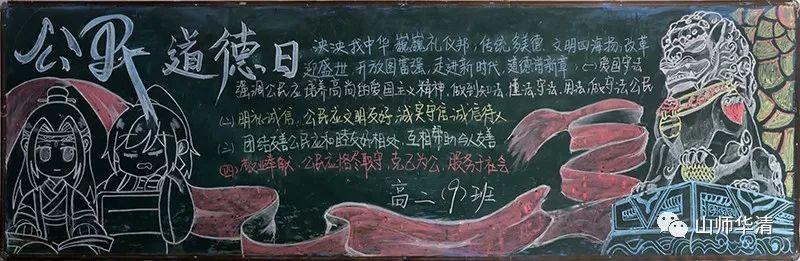 公民道德日
泱泱我中华,巍巍礼仪邦,传统多美德,文明四海扬,改革
迎盛世,开放国富强,走进新时代,道德谱新章,(一)爱国守法
强调公民应培养高尚的爱国主义精神,做到知法,懂法,守法,用法,做守法公民
(二)明礼诚信,公民应文明友好,诚实守信,诚信待人
(三)团结友善公民应和睦友好相处,互相帮助与人友善
(四)敬业奉献,公民应恪尽职守,克己为公,服务于社会
高二(9)班
山师华清